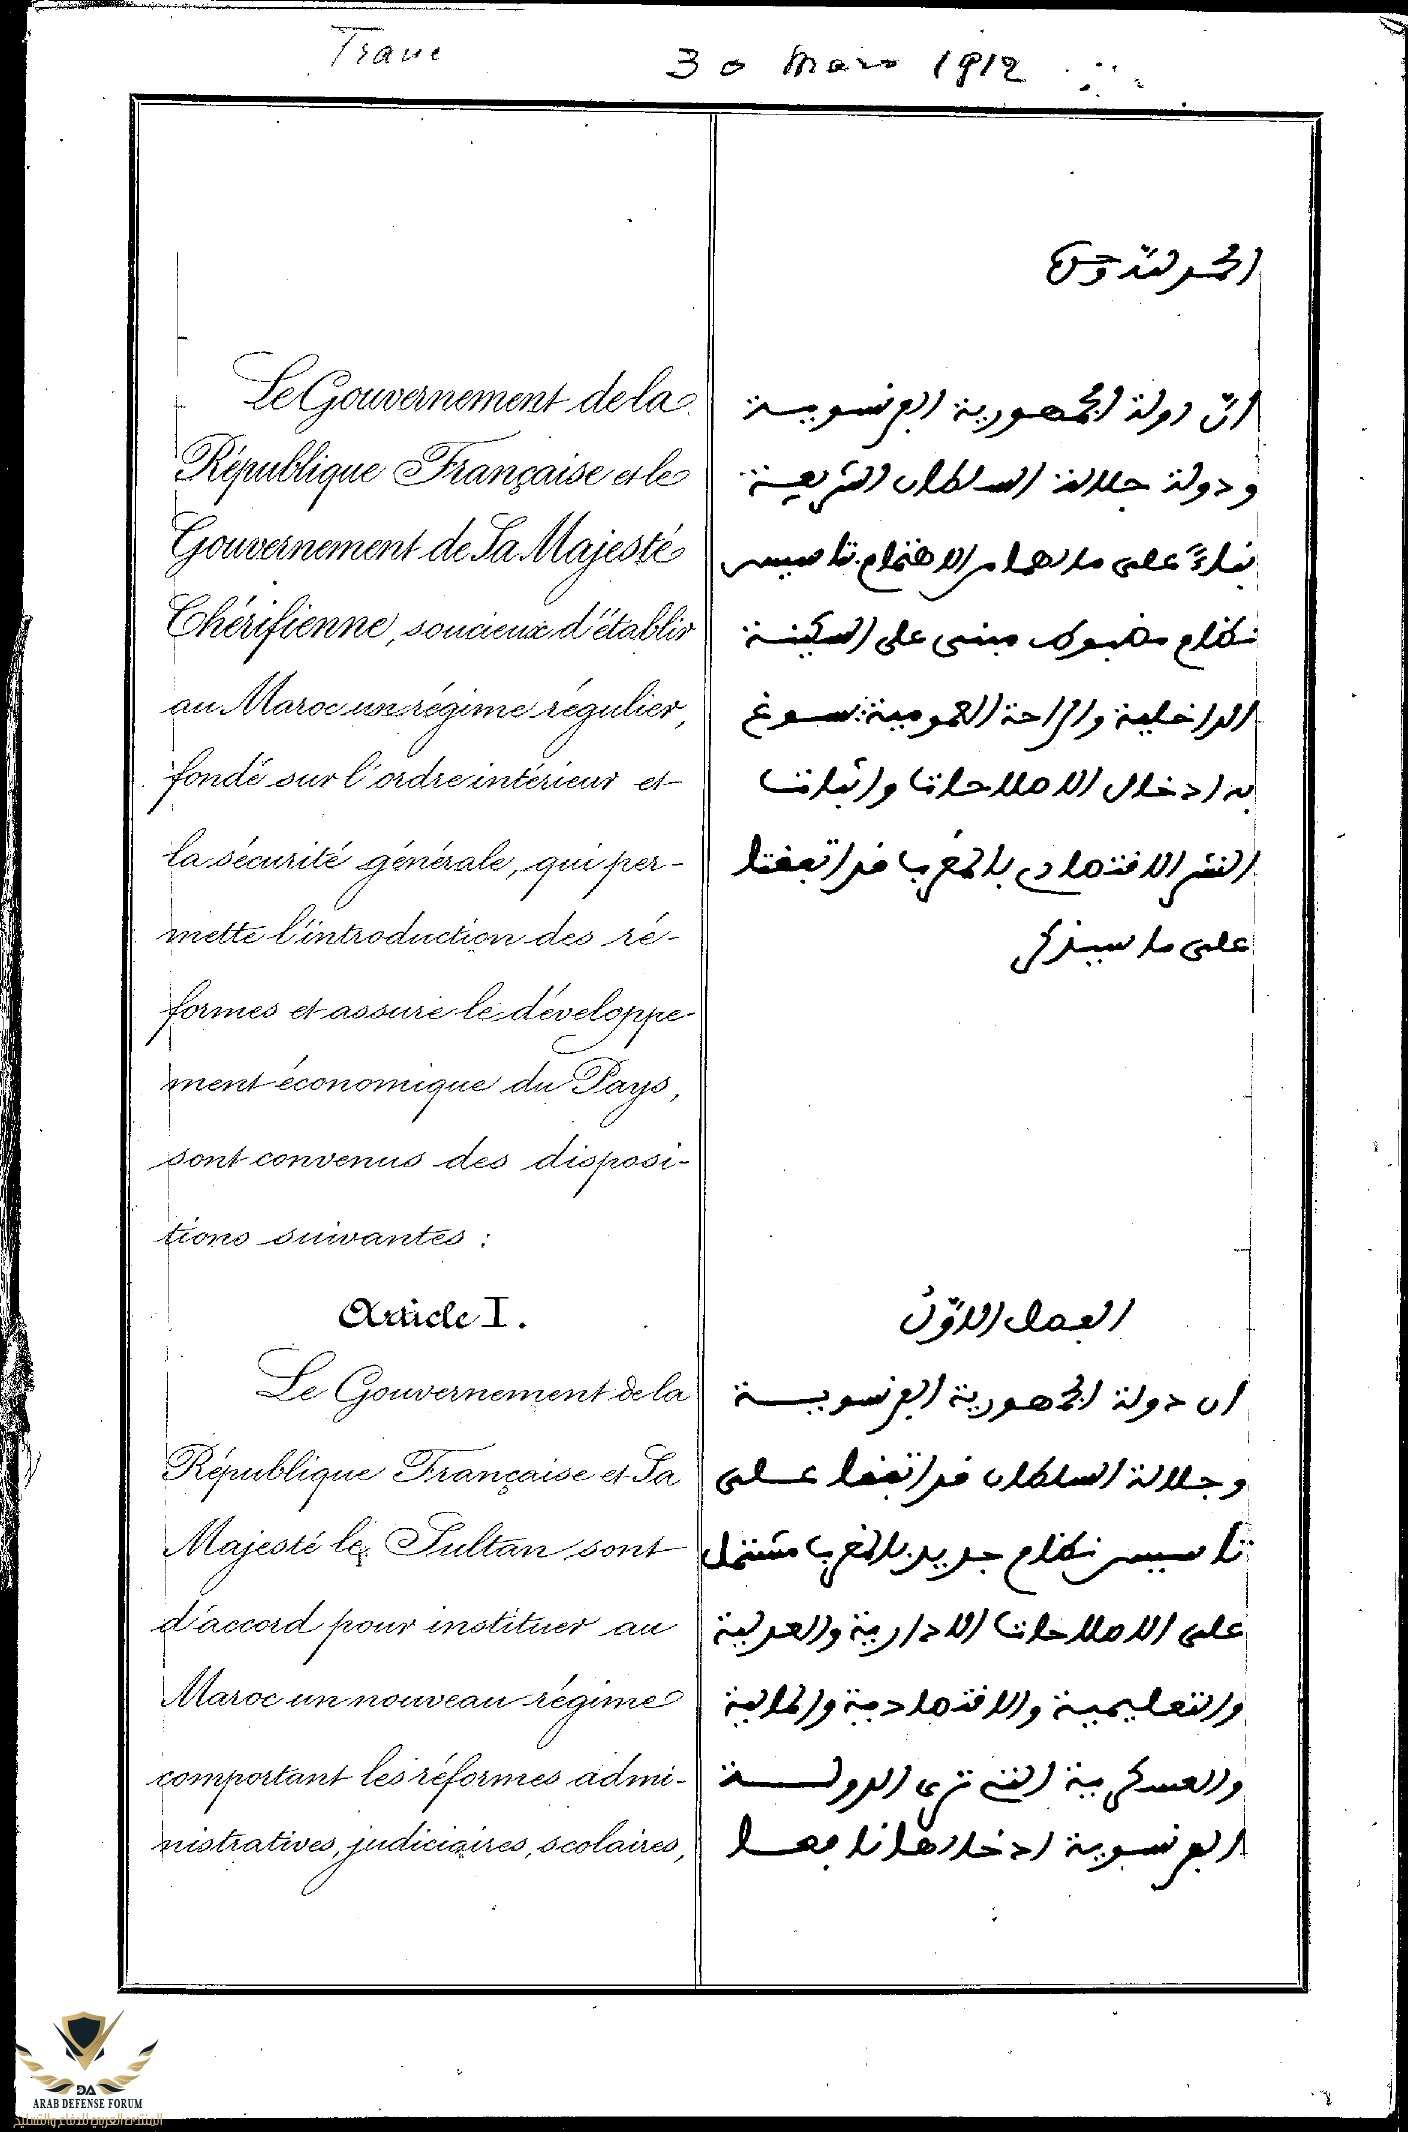 30 Mars 1912
Le Gouvernement de la
République Française et le
Gouvernement de Sa Majesté
Chérifienne, soucieux d'établir
au Maroc un régime régulier,
fondé sur l'ordre intérieur et
la sécurité générale, qui per-
mette l'introduction des ré-
formes et assure le développe-
ment économique du Pays,
sont convenus des disposi-
tions suivantes :
Article I.
Le Gouvernement de la
République Française et Sa
Majesté le Sultan sont
d'accord pour instituer au
Maroc un nouveau régime
comportant les réformes admi-
nistratives, judiciaires, scolaires,
الحمد لله وحده
انّ دولة الجمهورية الفرنسوية
ودولة جلالة السلطان الشريفة
بناءً على ما لهما من الاهتمام بتاسيس
نظام مضبوط مبنى على السكينة
الداخلية والراحة العمومية يسوغ
به ادخال الاصلاحات واثبات
النشر الاقتصادى بالمغرب قد اتفقتا
على ما سيذكر
الفصل الاوّل
ان دولة الجمهورية الفرنسوية
وجلالة السلطان قد اتفقا على
تاسيس نظام جديد بالمغرب مشتمل
على الاصلاحات الادارية والعدلية
والتعليمية والاقتصادية والمالية
والعسكرية التى ترى الدولة
الفرنسوية ادخالها نافعا
DA
ARAB DEFENSE FORUM
المنتدى العربي للدفاع والتسليح